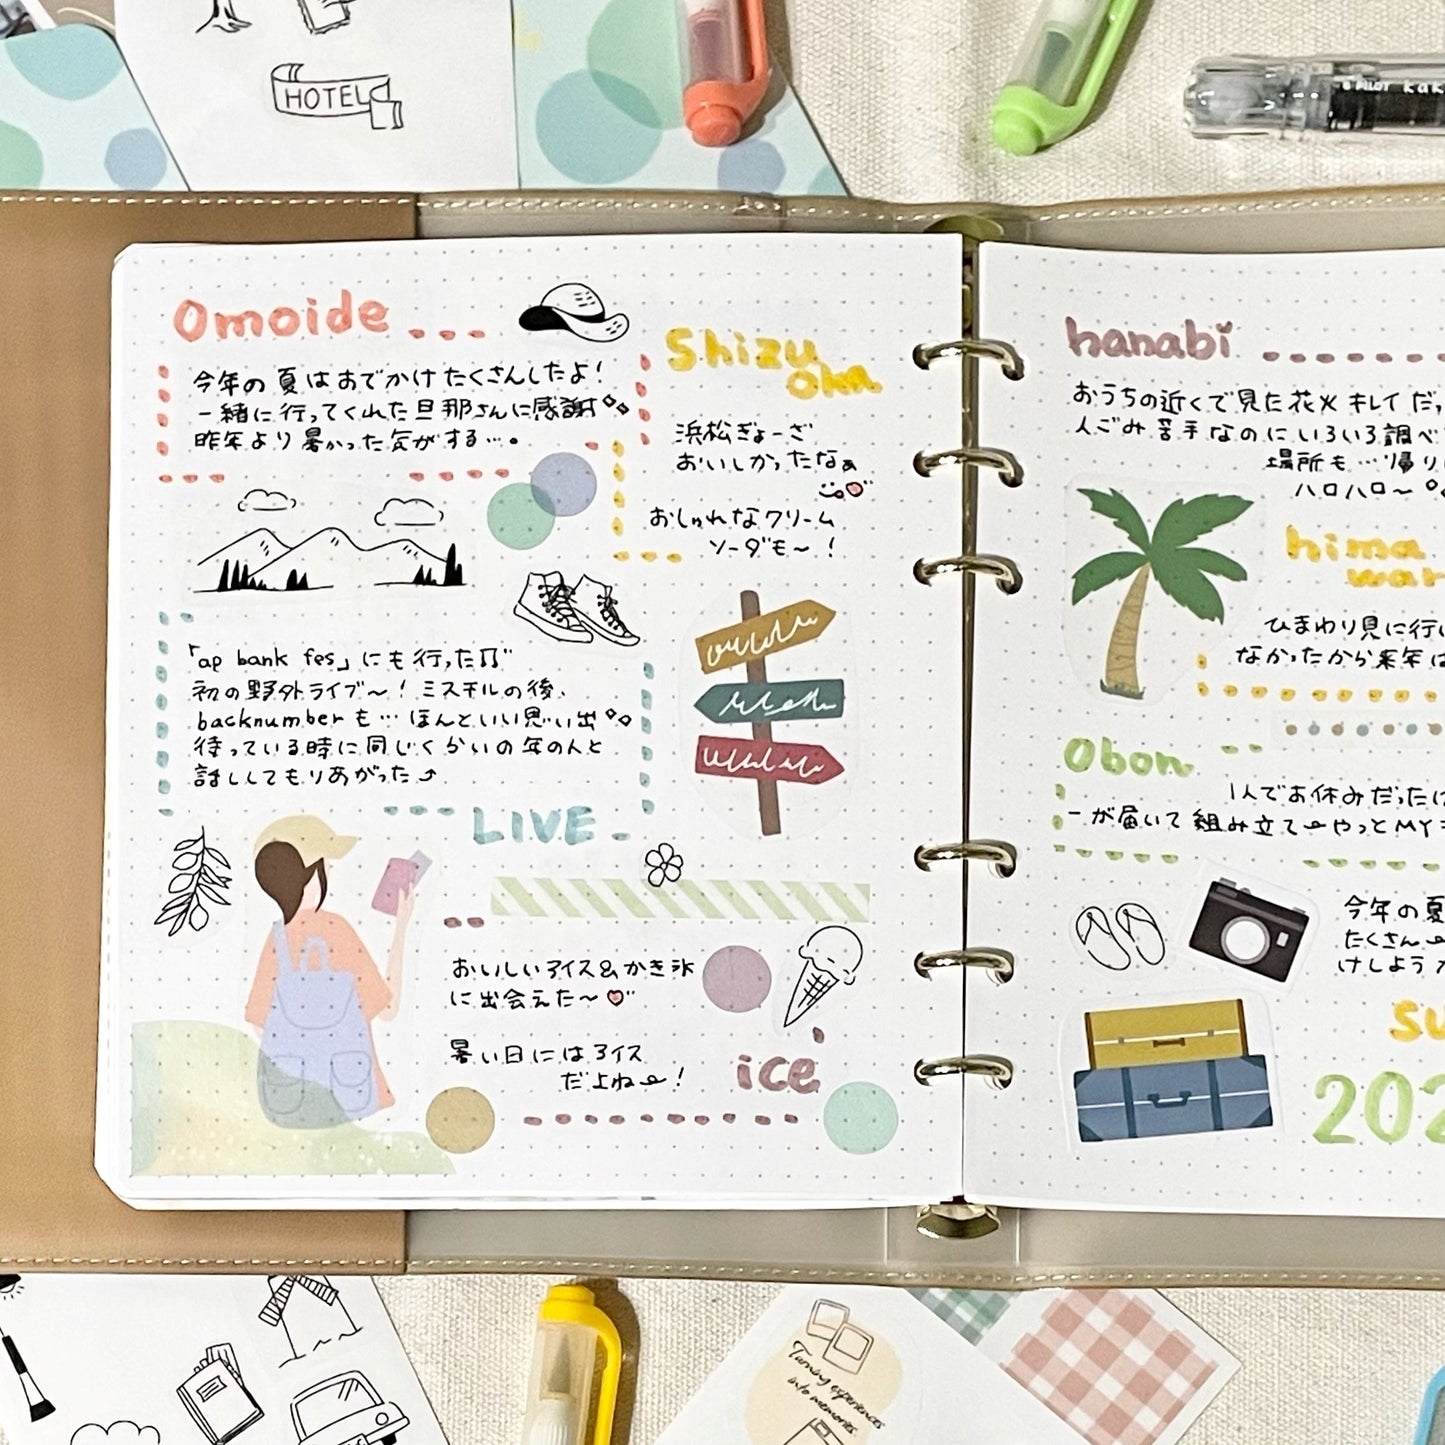 HOTEL
PILOT
Omoide
今年の夏はおでかけたくさんしたよ！
一緒に行ってくれた旦那さんに感謝
昨年より暑かった気がする…。
Shizu
oka
浜松ぎょーざ
おいしかったなぁ
おしゃれなクリーム
ソーダも〜！
「ap bank fes」にも行った
初の野外ライブ〜！ミスチルの後、
backnumberも…ほんといい思い出
待っている時に同じくらいの年の人と
話ししてもりあがった
LIVE
おいしいアイス&かき氷
に出会えた〜
暑い日にはアイス
だよね〜！
ice
hanabi
おうちの近くで見た花火キレイだ
人ごみ苦手なのにいろいろ調べ
場所も…帰り
ハロハロ〜
hima
war
ひまわり見に行
なかったから来年は
Obon
1人でお休みだった
ーが届いて組み立て〜やっとMY
今年の夏
たくさん
けしよう
su
202
Turning experiences
into memories